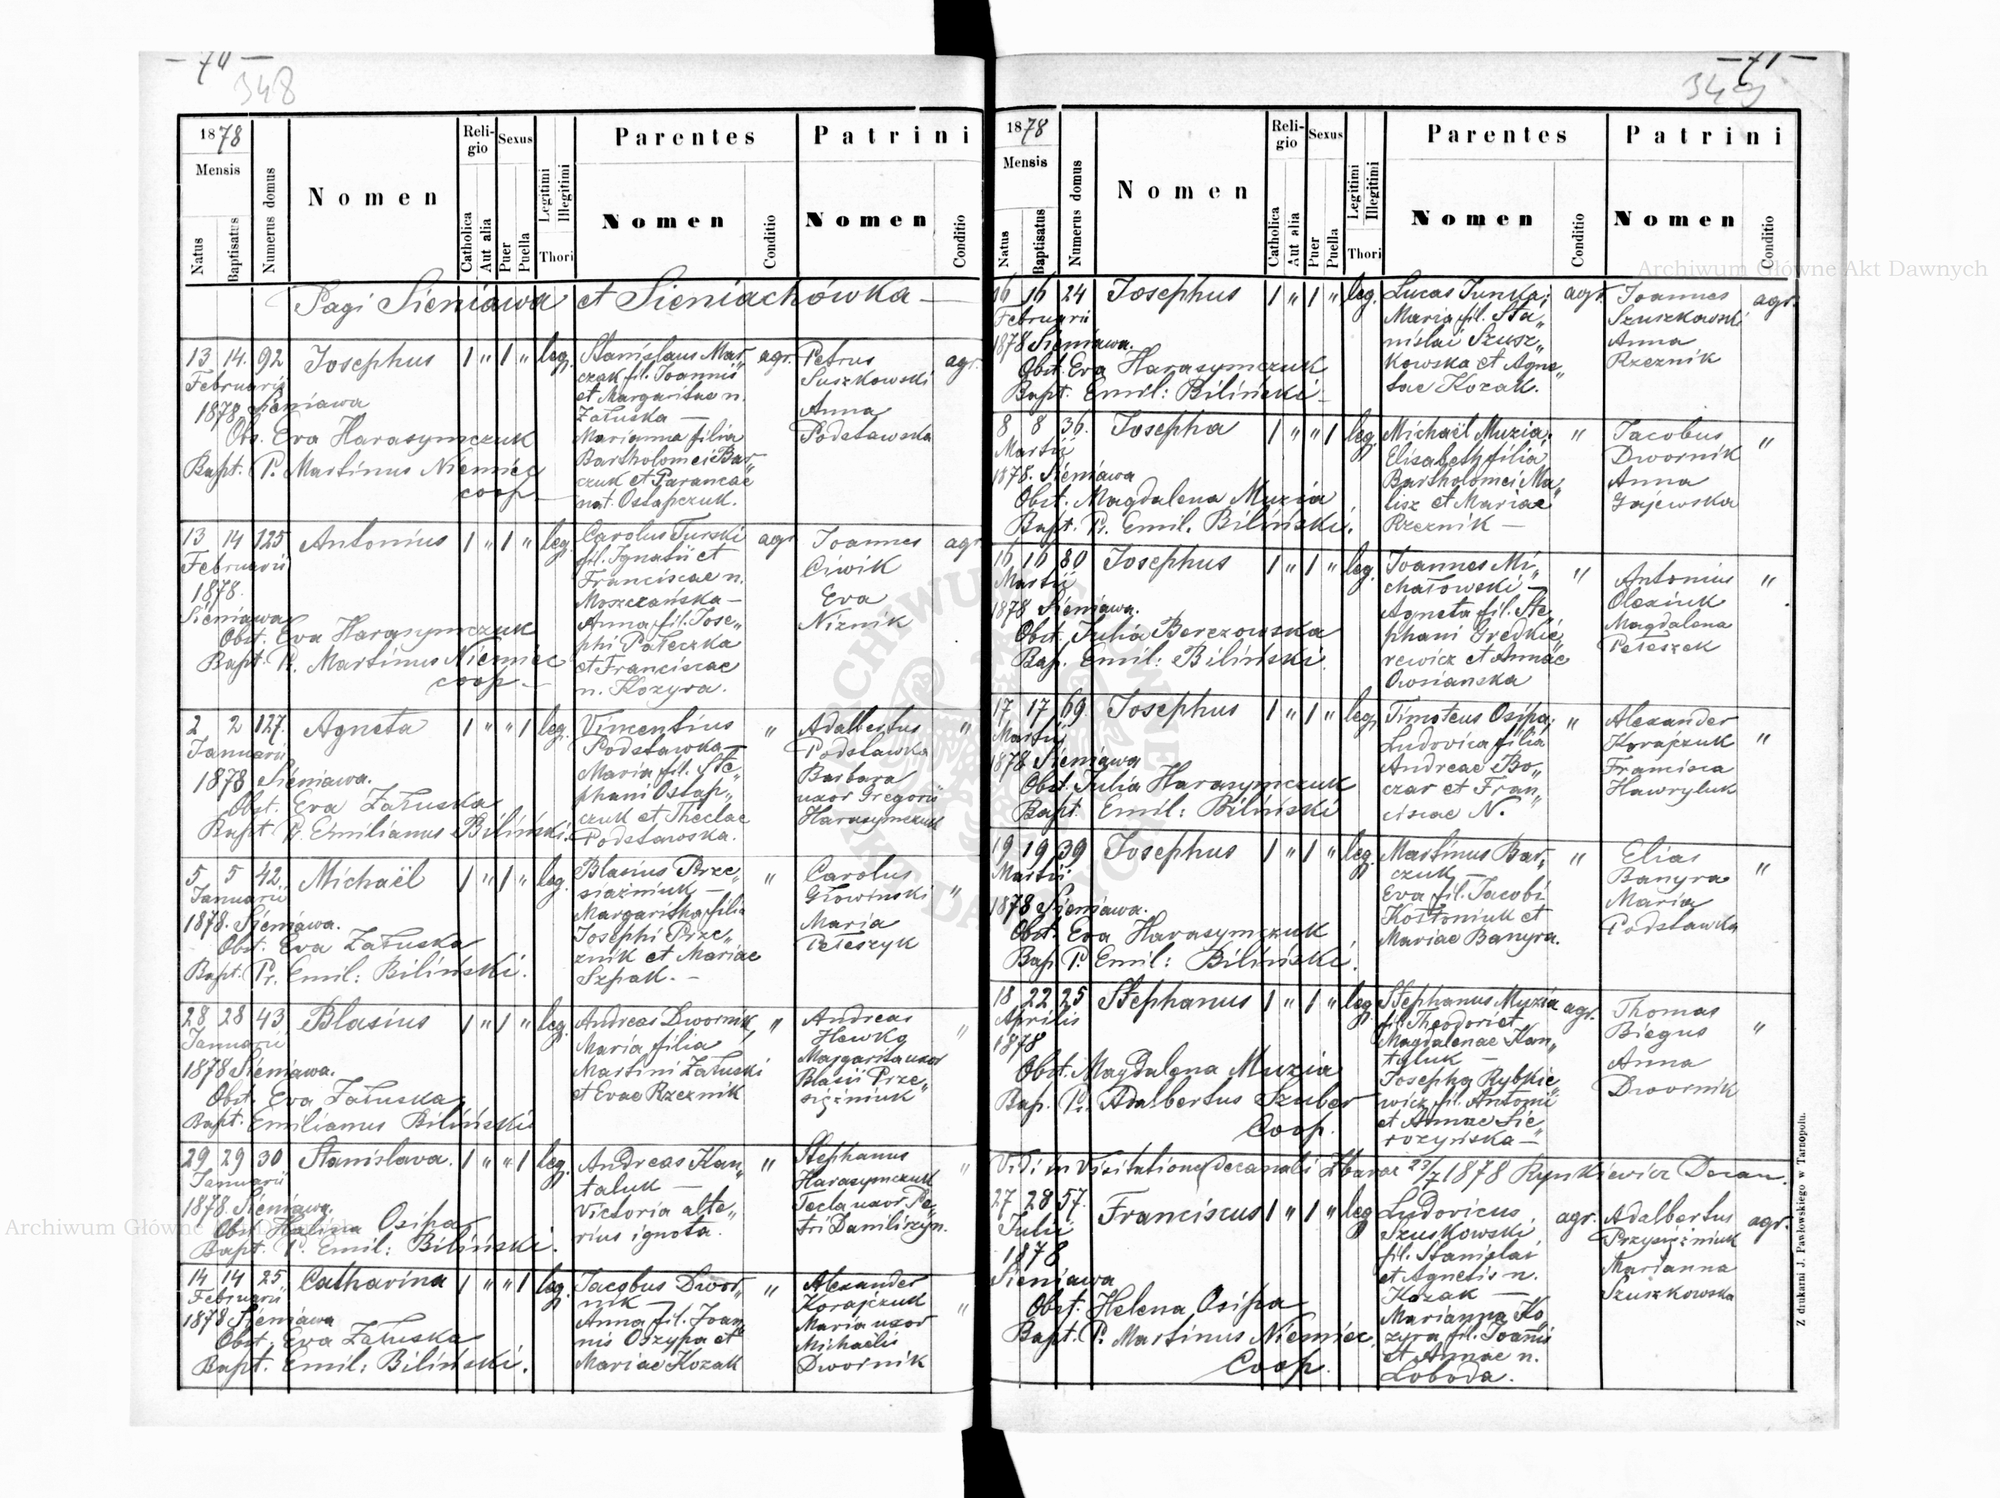 — 70 —
348
1878
Mensis
Natus
Baptisatus
Numerus domus
Nomen
Religio
Catholica
Aut alia
Sexus
Puer
Puella
Legitimi
Illegitimi
Thori
Parentes
Nomen
Conditio
Patrini
Nomen
Conditio
Pagi Sieniawa et Sieniachówka —
13 14. 92 Josephus 1 " 1 " leg. Stanislaus Mar„ agr. Petrus agr.
Februarii czak fil. Joannis Suszkowski
1878 Sieniawa et Margaritae n. Anna
Obs. Eva Harasymczuk Załuska — Podstawska
Bapt. P. Martinus Niemiec Marianna filia
coop — Bartholomei Bar„
czuk et Parancae
nat. Ostapczuk.
13 14 125 Antonius 1 " 1 " leg. Carolus Turski agr. Joannes agr.
Februarii fil. Ignatii et Ćwik
1878. Franciscae n. Eva
Sieniawa Moszczańska — Niznik
Obst. Eva Harasymczuk Anna fil. Jose„
Bapt. P. Martinus Niemiec phi Pałeczka
coop — et Franciscae
n. Kozyra.
2 2 127. Agneta 1 " " 1 leg. Vincentius " Adalbertus "
Januarii Podstawka — Podstawka
1878 Sieniawa. Maria fil. Ste„ Barbara
Obst. Eva Załuska phani Ostap„ uxor Gregorii
Bapt. P. Emilianus Biliński. czuk et Theclae Harasymczuk
Podstawska.
5 5 42. Michaël 1 " 1 " leg. Blasius Prze„ " Carolus "
Januarii siaźniuk — Głowiński
1878. Sieniawa. Margaritha filia Maria
Obst. Eva Załuska Josephi Prze„ Peteszyk
Bapt. Pr. Emil: Biliński. znik et Mariae
Szpak. —
28 28 43 Blasius 1 " 1 " leg. Andreas Dwornik, " Andreas "
Januarii Maria filia Hewko
1878 Sieniawa. Martini Załuski Margarita uxor
Obst. Eva Załuska et Evae Rzeznik Blasii Prze„
Bapt. Emilianus Biliński siężniuk
29 29 30 Stanislava. 1 " " 1 leg. Andreas Kan„ " Stephanus "
Januarii taluk — Harasymczuk
1878. Sieniawa. Victoria alte„ Tecla uxor Pe„
Obst. Halina Osipa rius ignota. tri Daniliszyn.
Bapt. P. Emil: Biliński.
14 14 25. Catharina 1 " " 1 leg. Jacobus Dwor„ " Alexander "
Februarii nik — Korajczuk
1878 Sieniawa Anna fil. Joan„ Maria uxor
Obst. Eva Załuska nis Oszypa et Michaëlis
Bapt. Emil: Biliński. Mariae Kozak Dwornik
— 71 —
349
1878
Mensis
Natus
Baptisatus
Numerus domus
Nomen
Religio
Catholica
Aut alia
Sexus
Puer
Puella
Legitimi
Illegitimi
Thori
Parentes
Nomen
Conditio
Patrini
Nomen
Conditio
16 16 24 Josephus 1 " 1 " leg. Lucas Junka; agr. Joannes agr.
Februarii Maria fil. Sta„ Szuszkowski
1878 Sieniawa. nislai Szusz„ Anna
Obst. Eva Harasymczuk kowska et Agne„ Rzeznik
Bapt. Emil: Biliński — tae Kozak.
8 8 36. Josepha 1 " " 1 leg. Michaël Muzia; " Jacobus "
Martii Elisabeth filia Dwornik
1878. Sieniawa Bartholomei Ma„ Anna
Obst. Magdalena Muzia lisz et Mariae Gajewska
Bapt. Pr. Emil. Biliński. Rzeznik —
16 16 80 Josephus 1 " 1 " leg. Joannes Mi„ " Antonius "
Martii chałowski — Olexiuk
1878 Sieniawa. Agneta fil. Ste„ Magdalena
Obst. Julia Berezowska phani Gredkie„ Peteszek
Bap. Emil: Biliński. rewicz et Annae
Owsianska
17 17 69 Josephus 1 " 1 " leg. Timoteus Osipa; " Alexander "
Martii Ludovica filia Korajczuk
1878 Sieniawa Andreae Bo„ Francisca
Obst. Julia Harasymczuk czar et Fran„ Hawryluk
Bapt. Emil: Biliński ciscae N.
19 19 39 Josephus 1 " 1 " leg. Martinus Bar„ " Elias "
Martii czuk — Banyra
1878 Sieniawa. Eva fil. Jacobi Maria
Obst. Eva Harasymczuk Kostoniuk et Podstawka
Bap. P. Emil: Biliński. Mariae Banyra.
18 22 25 Stephanus 1 " 1 " leg. Stephanus Muzia agr. Thomas "
Aprilis fil. Theodori et Biegus
1878 Magdalenae Kan„ Anna
Obst. Magdalena Muzia taluk — Dwornik
Bap. Pr. Adalbertus Szuber Josepha Rybkie„
Coop. wicz fil. Antonii
et Annae Sie„
rozyńska —
Vidi in Visitatione decanali Zbaraż 23/7 1878 Rynkiewicz Decan.
27 28 57. Franciscus 1 " 1 " leg. Ludovicus agr. Adalbertus agr.
Julii Szuskowski Przysiężniuk
1878 fil. Stanislai Marianna
Sieniawa et Agnetis n. Szuszkowska
Obst. Helena Osipa Kozak —
Bapt. P. Martinus Niemiec Marianna Ko„
Coop. zyra fil. Joannis
et Annae n.
Łoboda.
Z drukarni J. Pawłowskiego w Tarnopolu.
Archiwum Główne Akt Dawnych
Archiwum Główne Akt Dawnych
ARCHIWUM GŁÓWNE AKT DAWNYCH